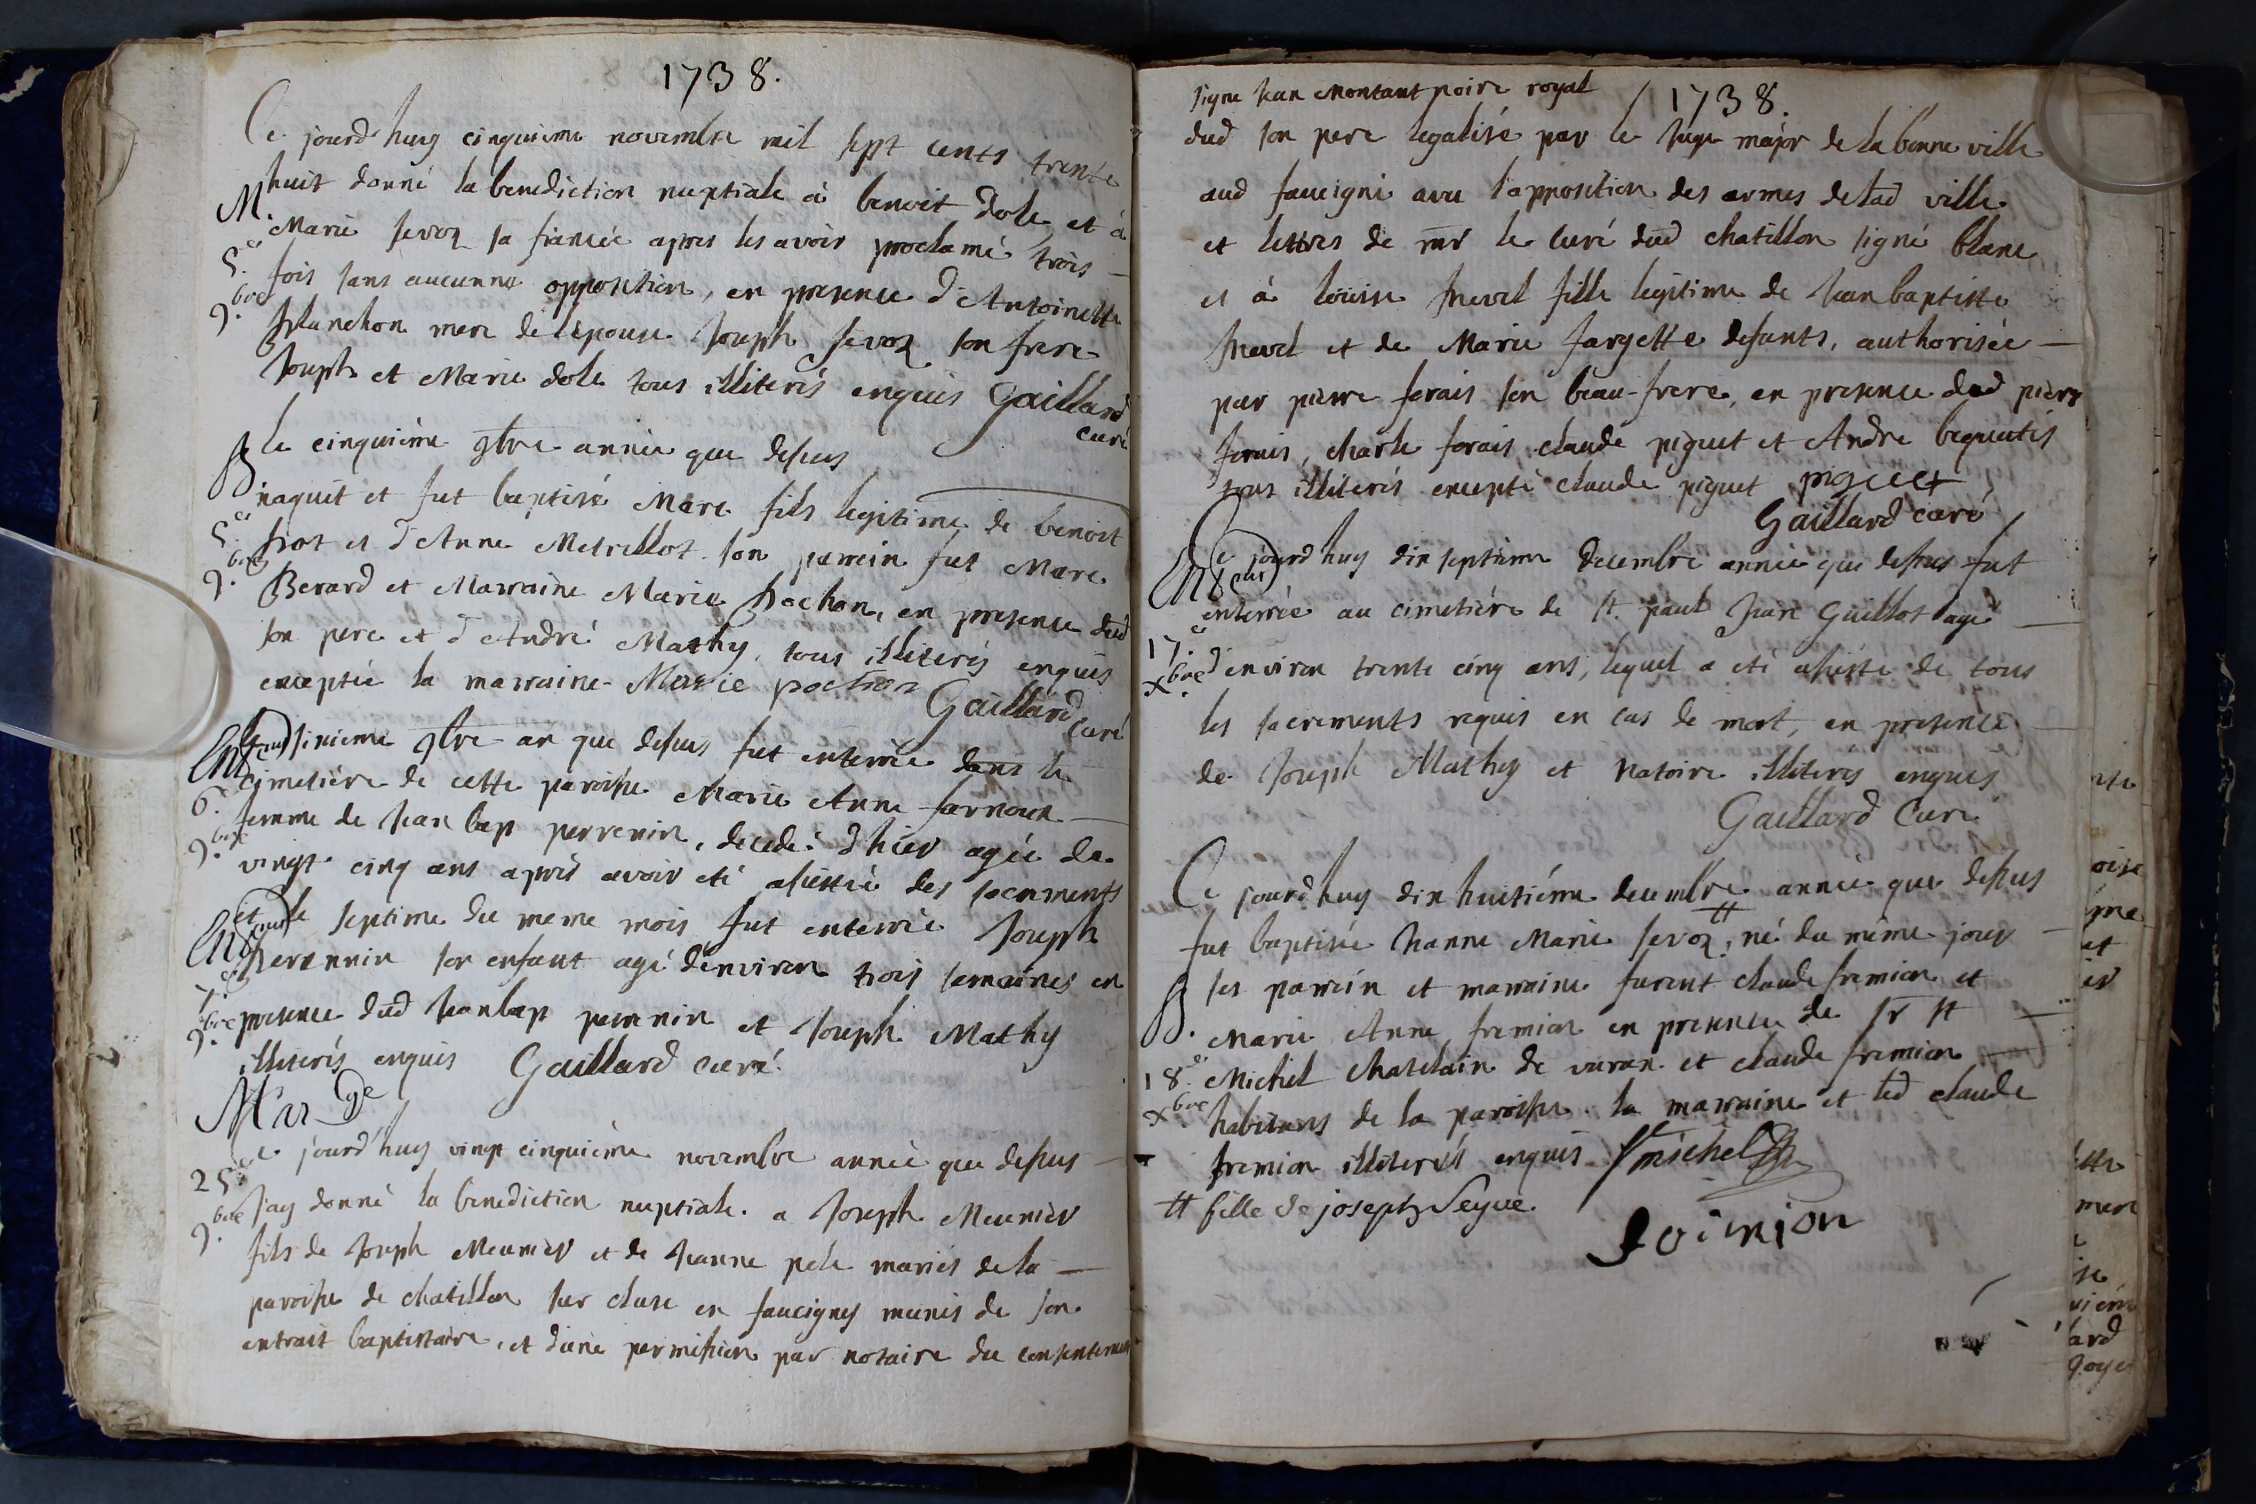 1738.
Ce jourd'huy cinquieme novembre mil sept cents trente
huit donné la benediction nuptiale à benoit dole et à
M.
Marie sevoz sa fiancée apres les avoir proclamé trois
5.e
fois sans aucunne opposition, en presence d'Antoinette
9.bre
planchon mere de l'epouse Joseph sevoz son frere
Joseph et Marie dole tous illiterés enquis Gaillard
curé
le cinquième 9bre année que dessus
B
naquit et fut baptisé Marc fils legitime de benoit
5.e
prot et d'Anne Metrillot son parrein fut Marc
9.bre
Berard et Marraine Marie pochon, en presence dud
son pere et d'André Mathy, tous illiterés enquis
exceptée la marraine Marie pochon
Gaillard
curé
Ent
le sixieme 9bre an que dessus fut enterrée dans le
cimetière de cette paroisse Marie Anne farnoux
6.e
femme de Jean bap perrenin, decedé d'hier agée de
9.bre
vingt cinq ans apres avoir eté assistée des sacrements
et le septime du meme mois fut enterrée Joseph
Ent
perennin son enfant agé d'environ trois semaines en
7.e
9.bre
presence dud Jean bap perrenin et Joseph Mathy
illiterés enquis Gaillard curé.
Mar ge
Ce jourd'huy vingt cinquième novembre année que dessus
25.e
9.bre
j'ay donné la benediction nuptiale a Joseph Meunier
fils de Joseph Meunier et de Jeanne pele mariés de la
paroisse de chatillon sur cluse en faucigny munis de son
extrait baptistaire, et d'une permission par notaire du consentement
signe Jean Montant noire royal
1738.
dud son pere legalisé par le Juge major de la bonne ville
aud faucigni avec l'apposition des armes de lad ville
et lettres de mr le curé dud chatillon signé blanc
et à loüise frevel fille legitime de Jean baptiste
frevel et de Marie fargette defunts, authorisée
par pierre forais son beau-frere, en presence dud pierre
forais, charle forais claude piguet et Andre bequetis
tous illiterés excepté claude piguet piguet
Gaillard curé
Ce jourd'huy dix septième decembre année que dessus fut
Ent
enterrée au cimetière de st. paul Jean Guillot agé
17.e
d'environ trente cinq ans, lequel a eté assisté de tous
xbre
les sacrements requis en cas de mort, en presence
de Joseph Mathy et Natoire illiteres enquis
Gaillard Curé
Ce jourd'huy dix huitiéme decembre # année que dessus
fut baptisée Jeanne Marie sevoz, né du même jour
ses parrein et marraine furent claude fremion et
B.
Marie Anne fremion en presence de sr st
18.e
Michel chatelain de voran et claude fremion
xbre
habitans de la paroisse la marraine et led claude
fremion illiterés enquis St michel
# fille de joseph Seyve.
Soinion